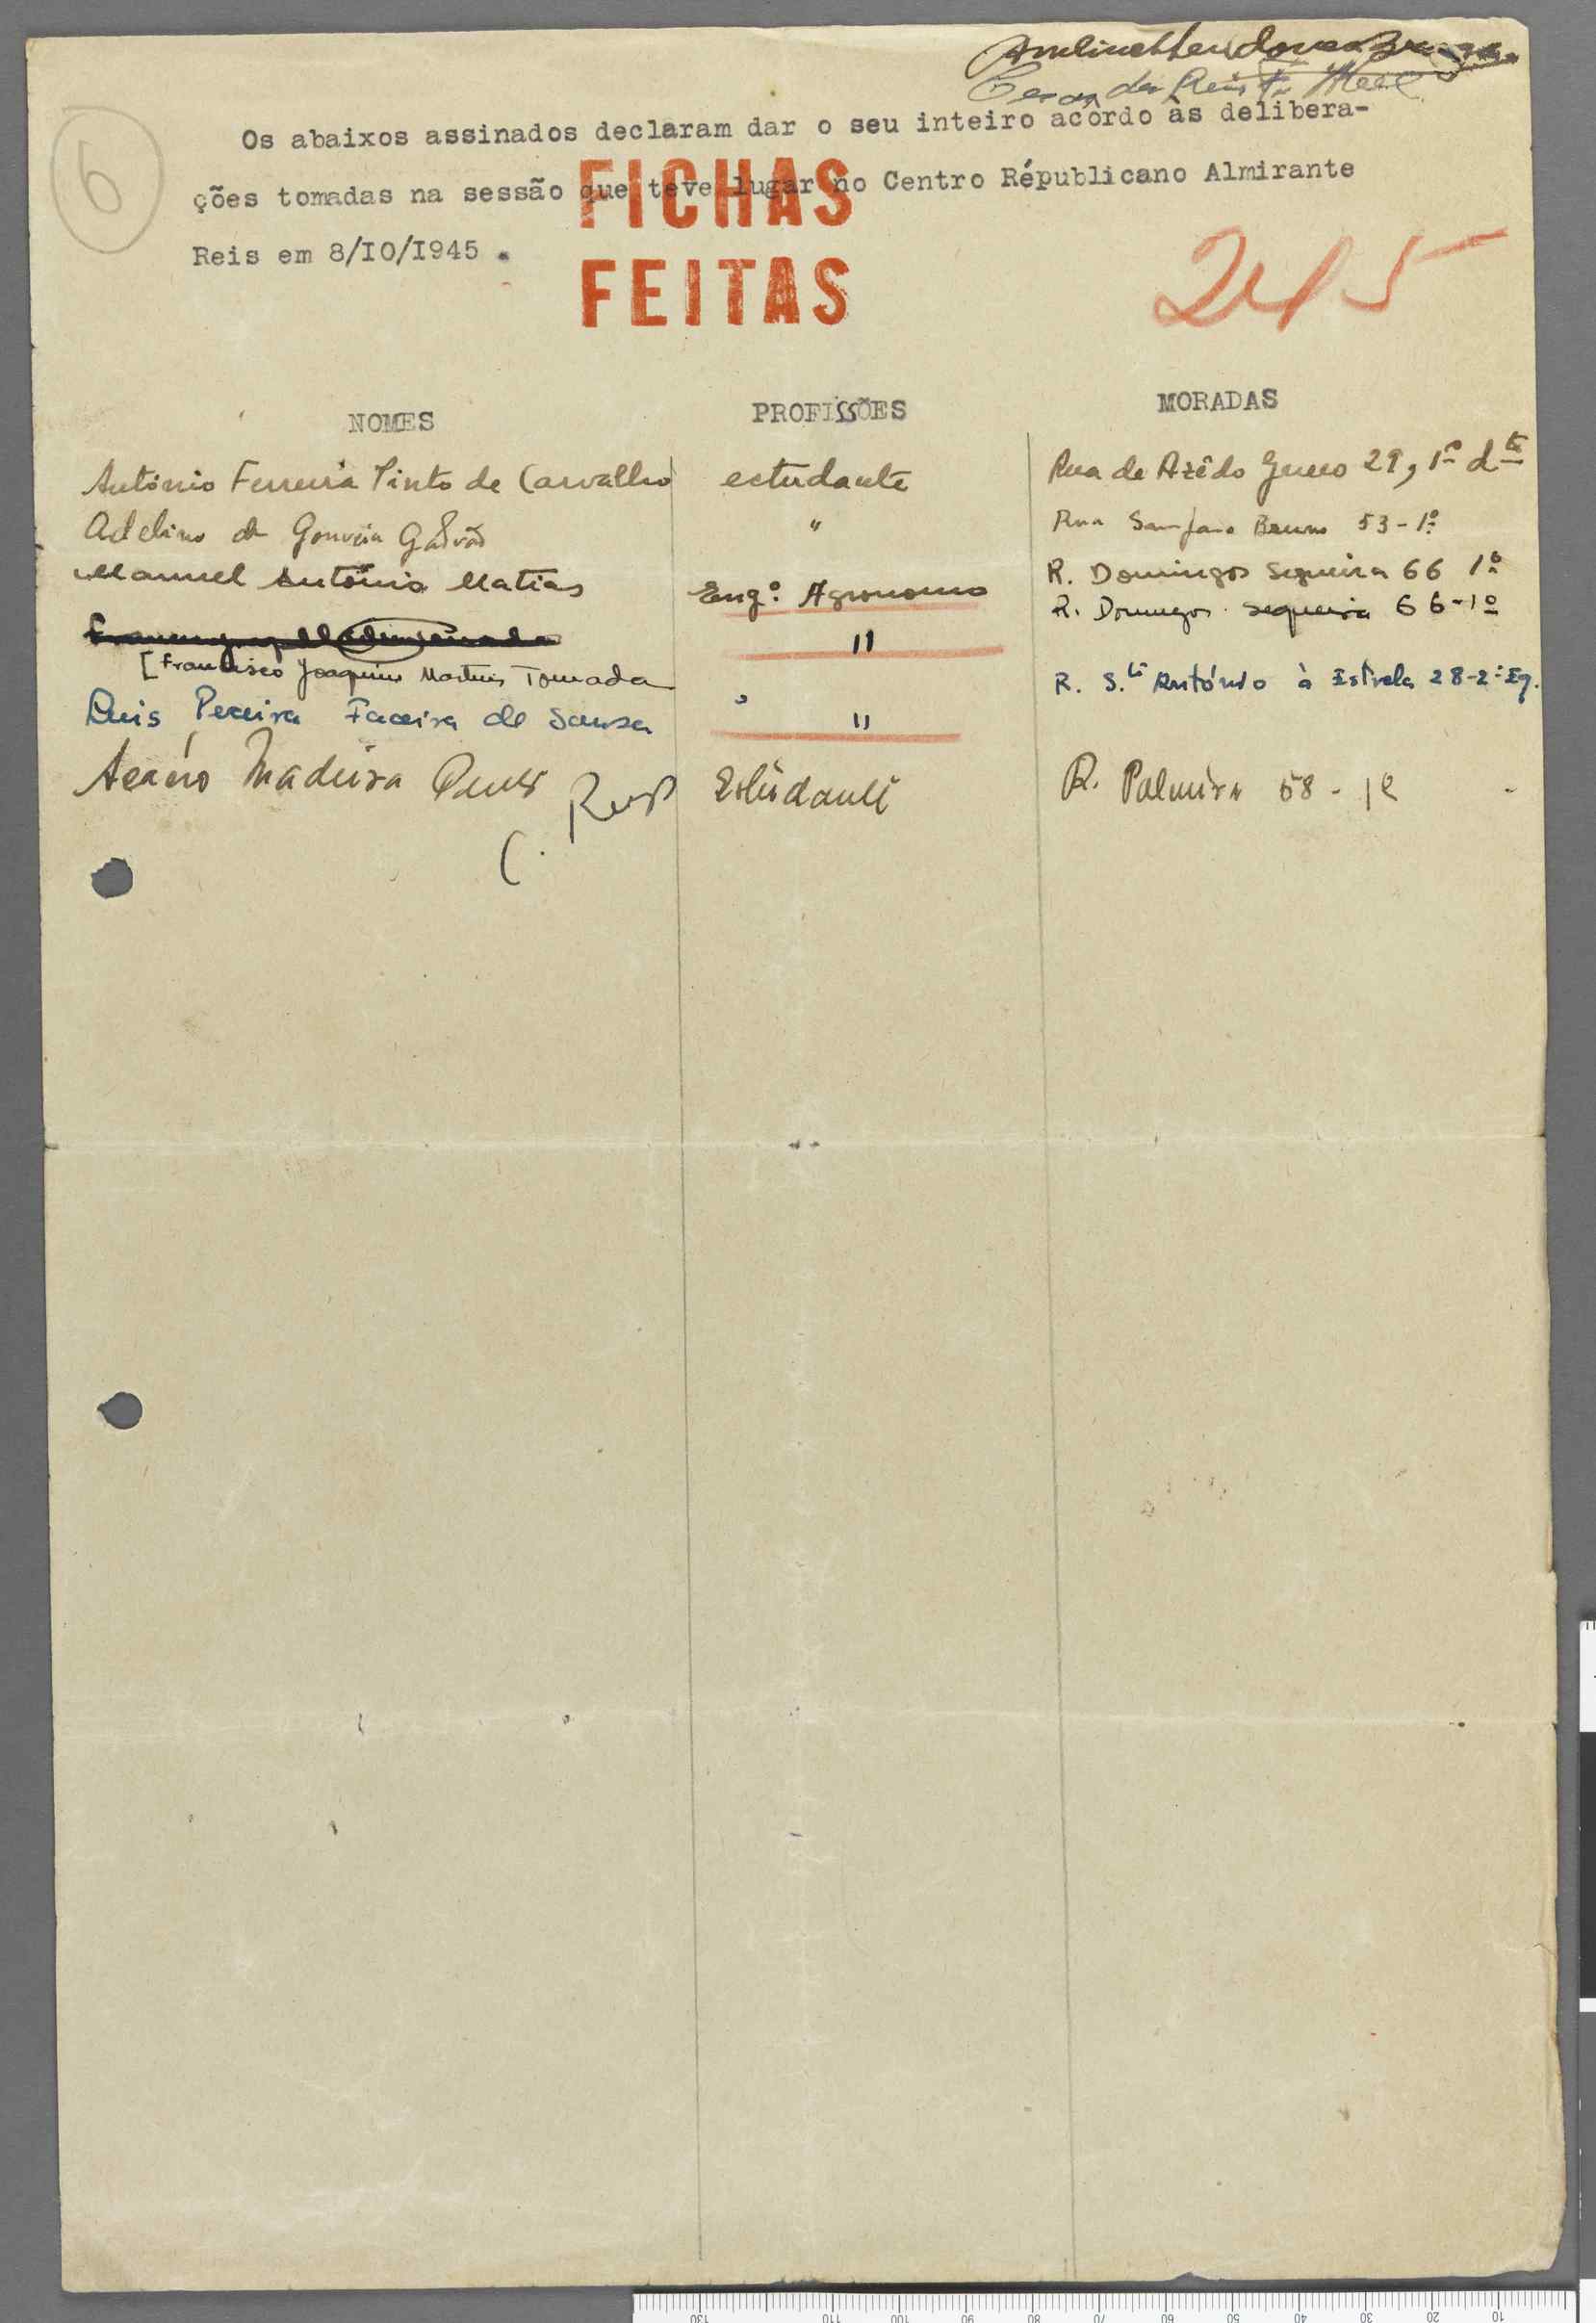 6
Os abaixos assinados declaram dar o seu inteiro acôrdo às delibera-
ções tomadas na sessão que teve lugar no Centro Républicano Almirante
Reis em 8/IO/I945 .
FICHAS
FEITAS
245
NOMES PROFISSÕES MORADAS
António Ferreira Pinto de Carvalho estudante Rua de Azêdo Gneco 29, 1º dto
Adelino de Gouveia Galvão " Rua Sampaio Bruno 53-1º
Manuel António Matias Engº. Agronomo R. Domingos Sequeira 66 1º
" R. Domingos Sequeira 66-1º
[Francisco Joaquim Martins Tourada
Luis Pereira Faceira de Sousa " R. S.to António à Estrela 28-2º Eq.
Madeira Estudante R. Palmira 58-1º
130 110 100 90 80 70 60 50 40 30 20 10